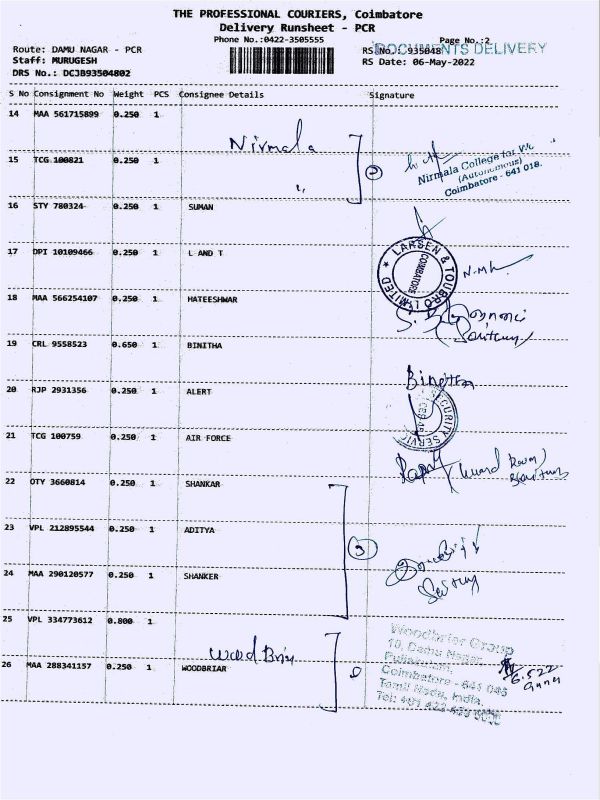 THE PROFESSIONAL COURIERS, Coimbatore
Delivery Runsheet - PCR
Phone No.:0422-3505555
Page No.:2
DOCUMENTS DELIVERY
Route: DAMU NAGAR - PCR
RS No.: 935048
Staff: MURUGESH
RS Date: 06-May-2022
DRS No.: DCJB93504802
S No Consignment No Weight PCS Consignee Details Signature
14 MAA 561715899 0.250 1
Nirmala
15 TCG 100821 0.250 1
Nirmala College for
(Autonomous)
Coimbatore - 641 018.
16 STY 780324 0.250 1 SUMAN
17 DPI 10109466 0.250 1 L AND T
LARSEN & TOUBRO LIMITED
COIMBATORE
18 MAA 566254107 0.250 1 HATEESHWAR
19 CRL 9558523 0.650 1 BINITHA
Binitha
20 RJP 2931356 0.250 1 ALERT
SECURITY
21 TCG 100759 0.250 1 AIR FORCE
22 OTY 3660814 0.250 1 SHANKAR
23 VPL 212895544 0.250 1 ADITYA
3
24 MAA 290120577 0.250 1 SHANKER
25 VPL 334773612 0.800 1
Wood Briar
26 MAA 288341157 0.250 1 WOODBRIAR
Woodbriar Group
10, Damu Nagar,
Puliakulam,
Coimbatore - 641 045
Tamil Nadu, India.
6.5.22